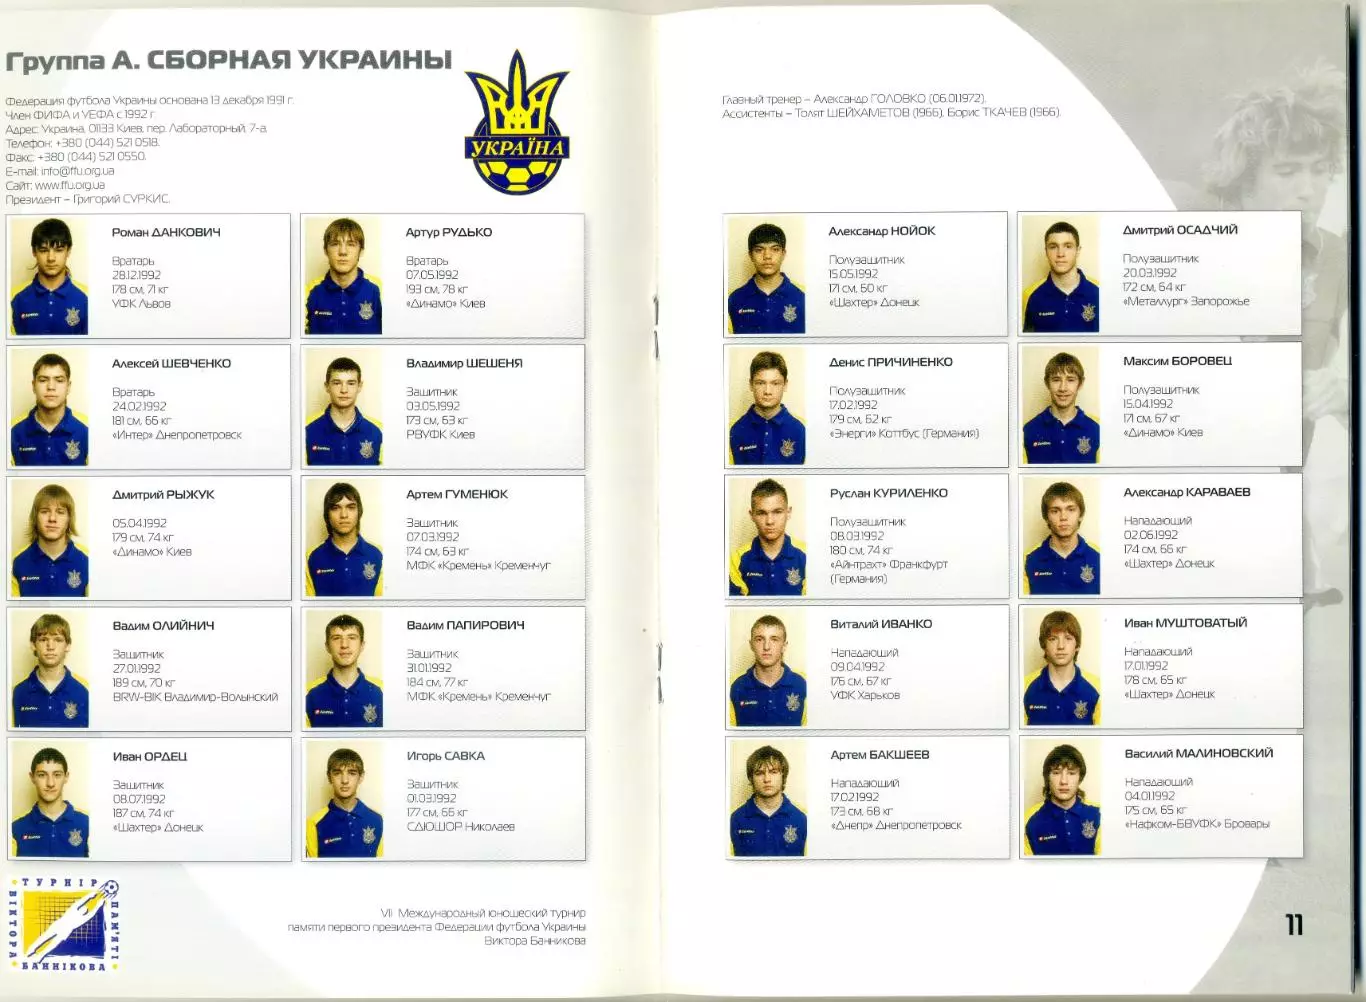 Группа А. СБОРНАЯ УКРАИНЫ
Федерация футбола Украины основана 13 декабря 1991 г.
Член ФИФА и УЕФА с 1992 г.
Адрес: Украина, 01133 Киев, пер. Лабораторный, 7-а.
Телефон: +380 (044) 521 0518.
Факс: +380 (044) 521 0550.
E-mail: info@ffu.org.ua
Сайт: www.ffu.org.ua
Президент – Григорий СУРКИС.
УКРАЇНА
Роман ДАНКОВИЧ
Вратарь
28.12.1992
178 см, 71 кг
УФК Львов
Артур РУДЬКО
Вратарь
07.05.1992
193 см, 78 кг
«Динамо» Киев
Алексей ШЕВЧЕНКО
Вратарь
24.02.1992
181 см, 66 кг
«Интер» Днепропетровск
Владимир ШЕШЕНЯ
Защитник
03.05.1992
173 см, 63 кг
РВУФК Киев
Дмитрий РЫЖУК
05.04.1992
179 см, 74 кг
«Динамо» Киев
Артем ГУМЕНЮК
Защитник
07.03.1992
174 см, 63 кг
МФК «Кремень» Кременчуг
Вадим ОЛИЙНИЧ
Защитник
27.01.1992
189 см, 70 кг
BRW-BIK Владимир-Волынский
Вадим ПАПИРОВИЧ
Защитник
31.01.1992
184 см, 77 кг
МФК «Кремень» Кременчуг
Иван ОРДЕЦ
Защитник
08.07.1992
187 см, 74 кг
«Шахтер» Донецк
Игорь САВКА
Защитник
01.03.1992
177 см, 66 кг
СДЮШОР Николаев
ТУРНІР
ПАМ'ЯТІ
ВІКТОРА
БАННІКОВА
VII Международный юношеский турнир
памяти первого президента Федерации футбола Украины
Виктора Банникова
Главный тренер – Александр ГОЛОВКО (06.01.1972).
Ассистенты – Толят ШЕЙХАМЕТОВ (1966). Борис ТКАЧЕВ (1966).
Александр НОЙОК
Полузащитник
15.05.1992
171 см, 60 кг
«Шахтер» Донецк
Дмитрий ОСАДЧИЙ
Полузащитник
20.03.1992
172 см, 64 кг
«Металлург» Запорожье
Денис ПРИЧИНЕНКО
Полузащитник
17.02.1992
179 см, 62 кг
«Энерги» Коттбус (Германия)
Максим БОРОВЕЦ
Полузащитник
15.04.1992
171 см, 67 кг
«Динамо» Киев
Руслан КУРИЛЕНКО
Полузащитник
08.03.1992
180 см, 74 кг
«Айнтрахт» Франкфурт
(Германия)
Александр КАРАВАЕВ
Нападающий
02.06.1992
174 см, 66 кг
«Шахтер» Донецк
Виталий ИВАНКО
Нападающий
09.04.1992
176 см, 67 кг
УФК Харьков
Иван МУШТОВАТЫЙ
Нападающий
17.01.1992
178 см, 65 кг
«Шахтер» Донецк
Артем БАКШЕЕВ
Нападающий
17.02.1992
173 см, 68 кг
«Днепр» Днепропетровск
Василий МАЛИНОВСКИЙ
Нападающий
04.01.1992
175 см, 65 кг
«Нафком-БВУФК» Бровары
11